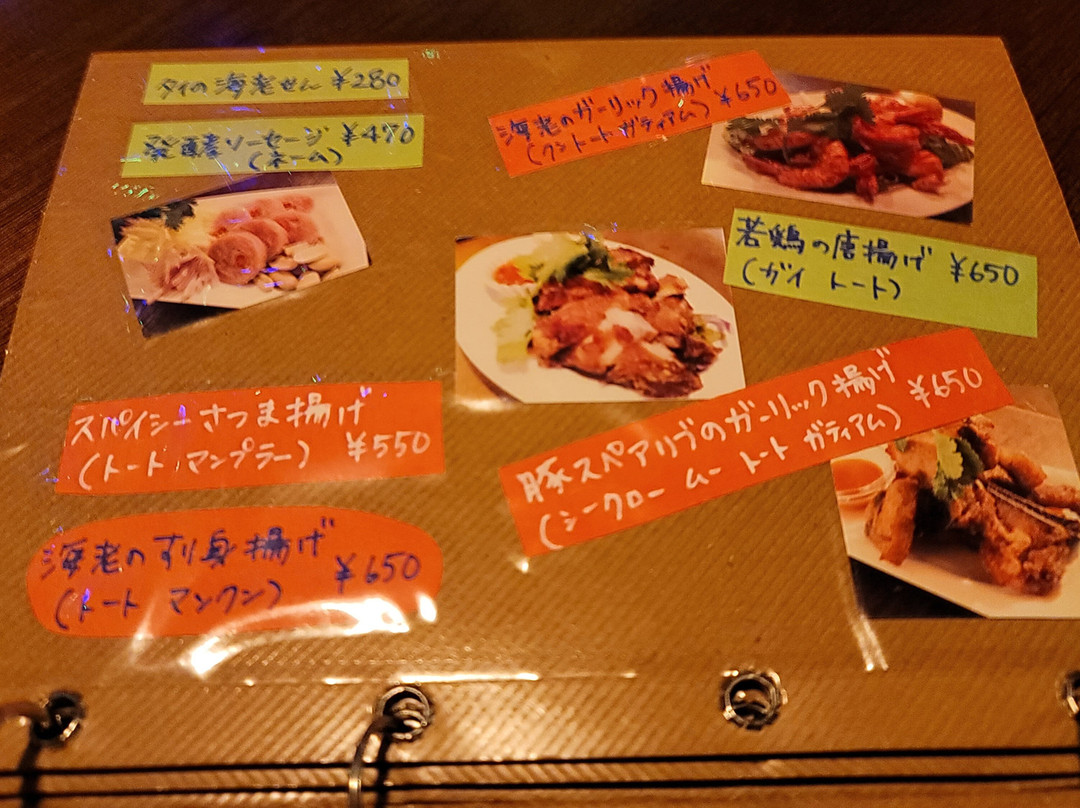 タイの海老せん ¥280
発酵ソーセージ ¥470
(ネーム)
スパイシーさつま揚げ
(トート マンプラー) ¥550
海老のすり身揚げ
(トート マンクン) ¥650
海老のガーリック揚げ ¥650
(クントート ガティアム)
若鶏の唐揚げ ¥650
(ガイ トート)
豚スペアリブのガーリック揚げ ¥650
(シークロー ムー トート ガティアム)